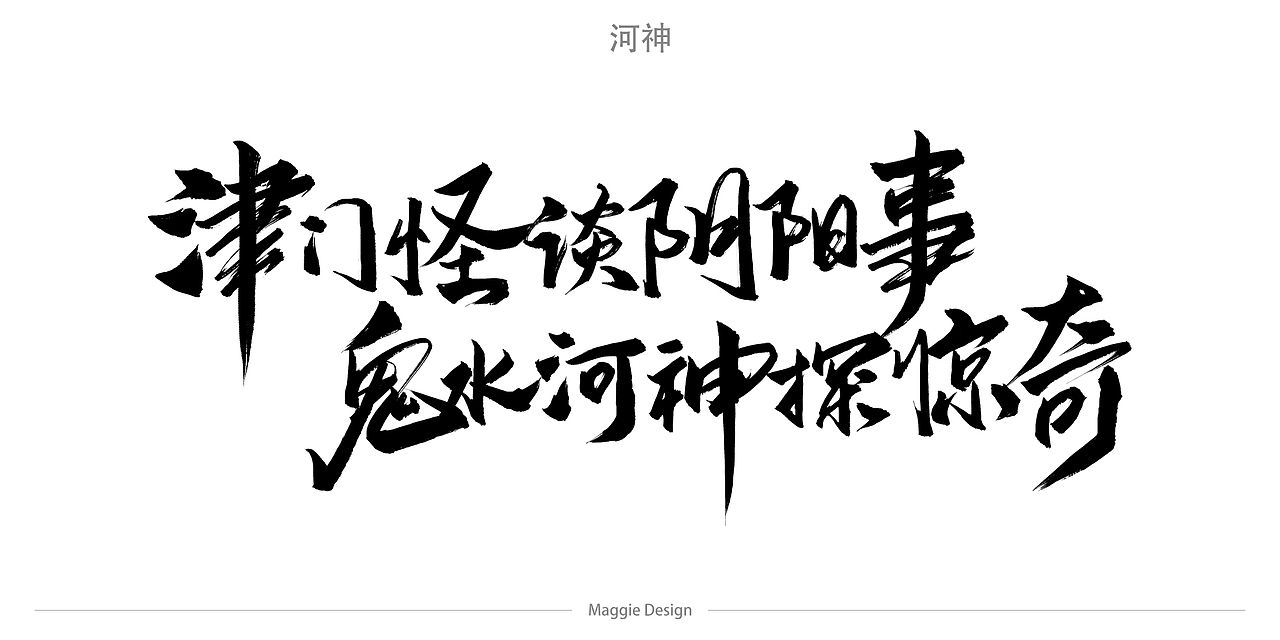 河神
津门怪谈阴阳事
鬼水河神探惊奇
Maggie Design